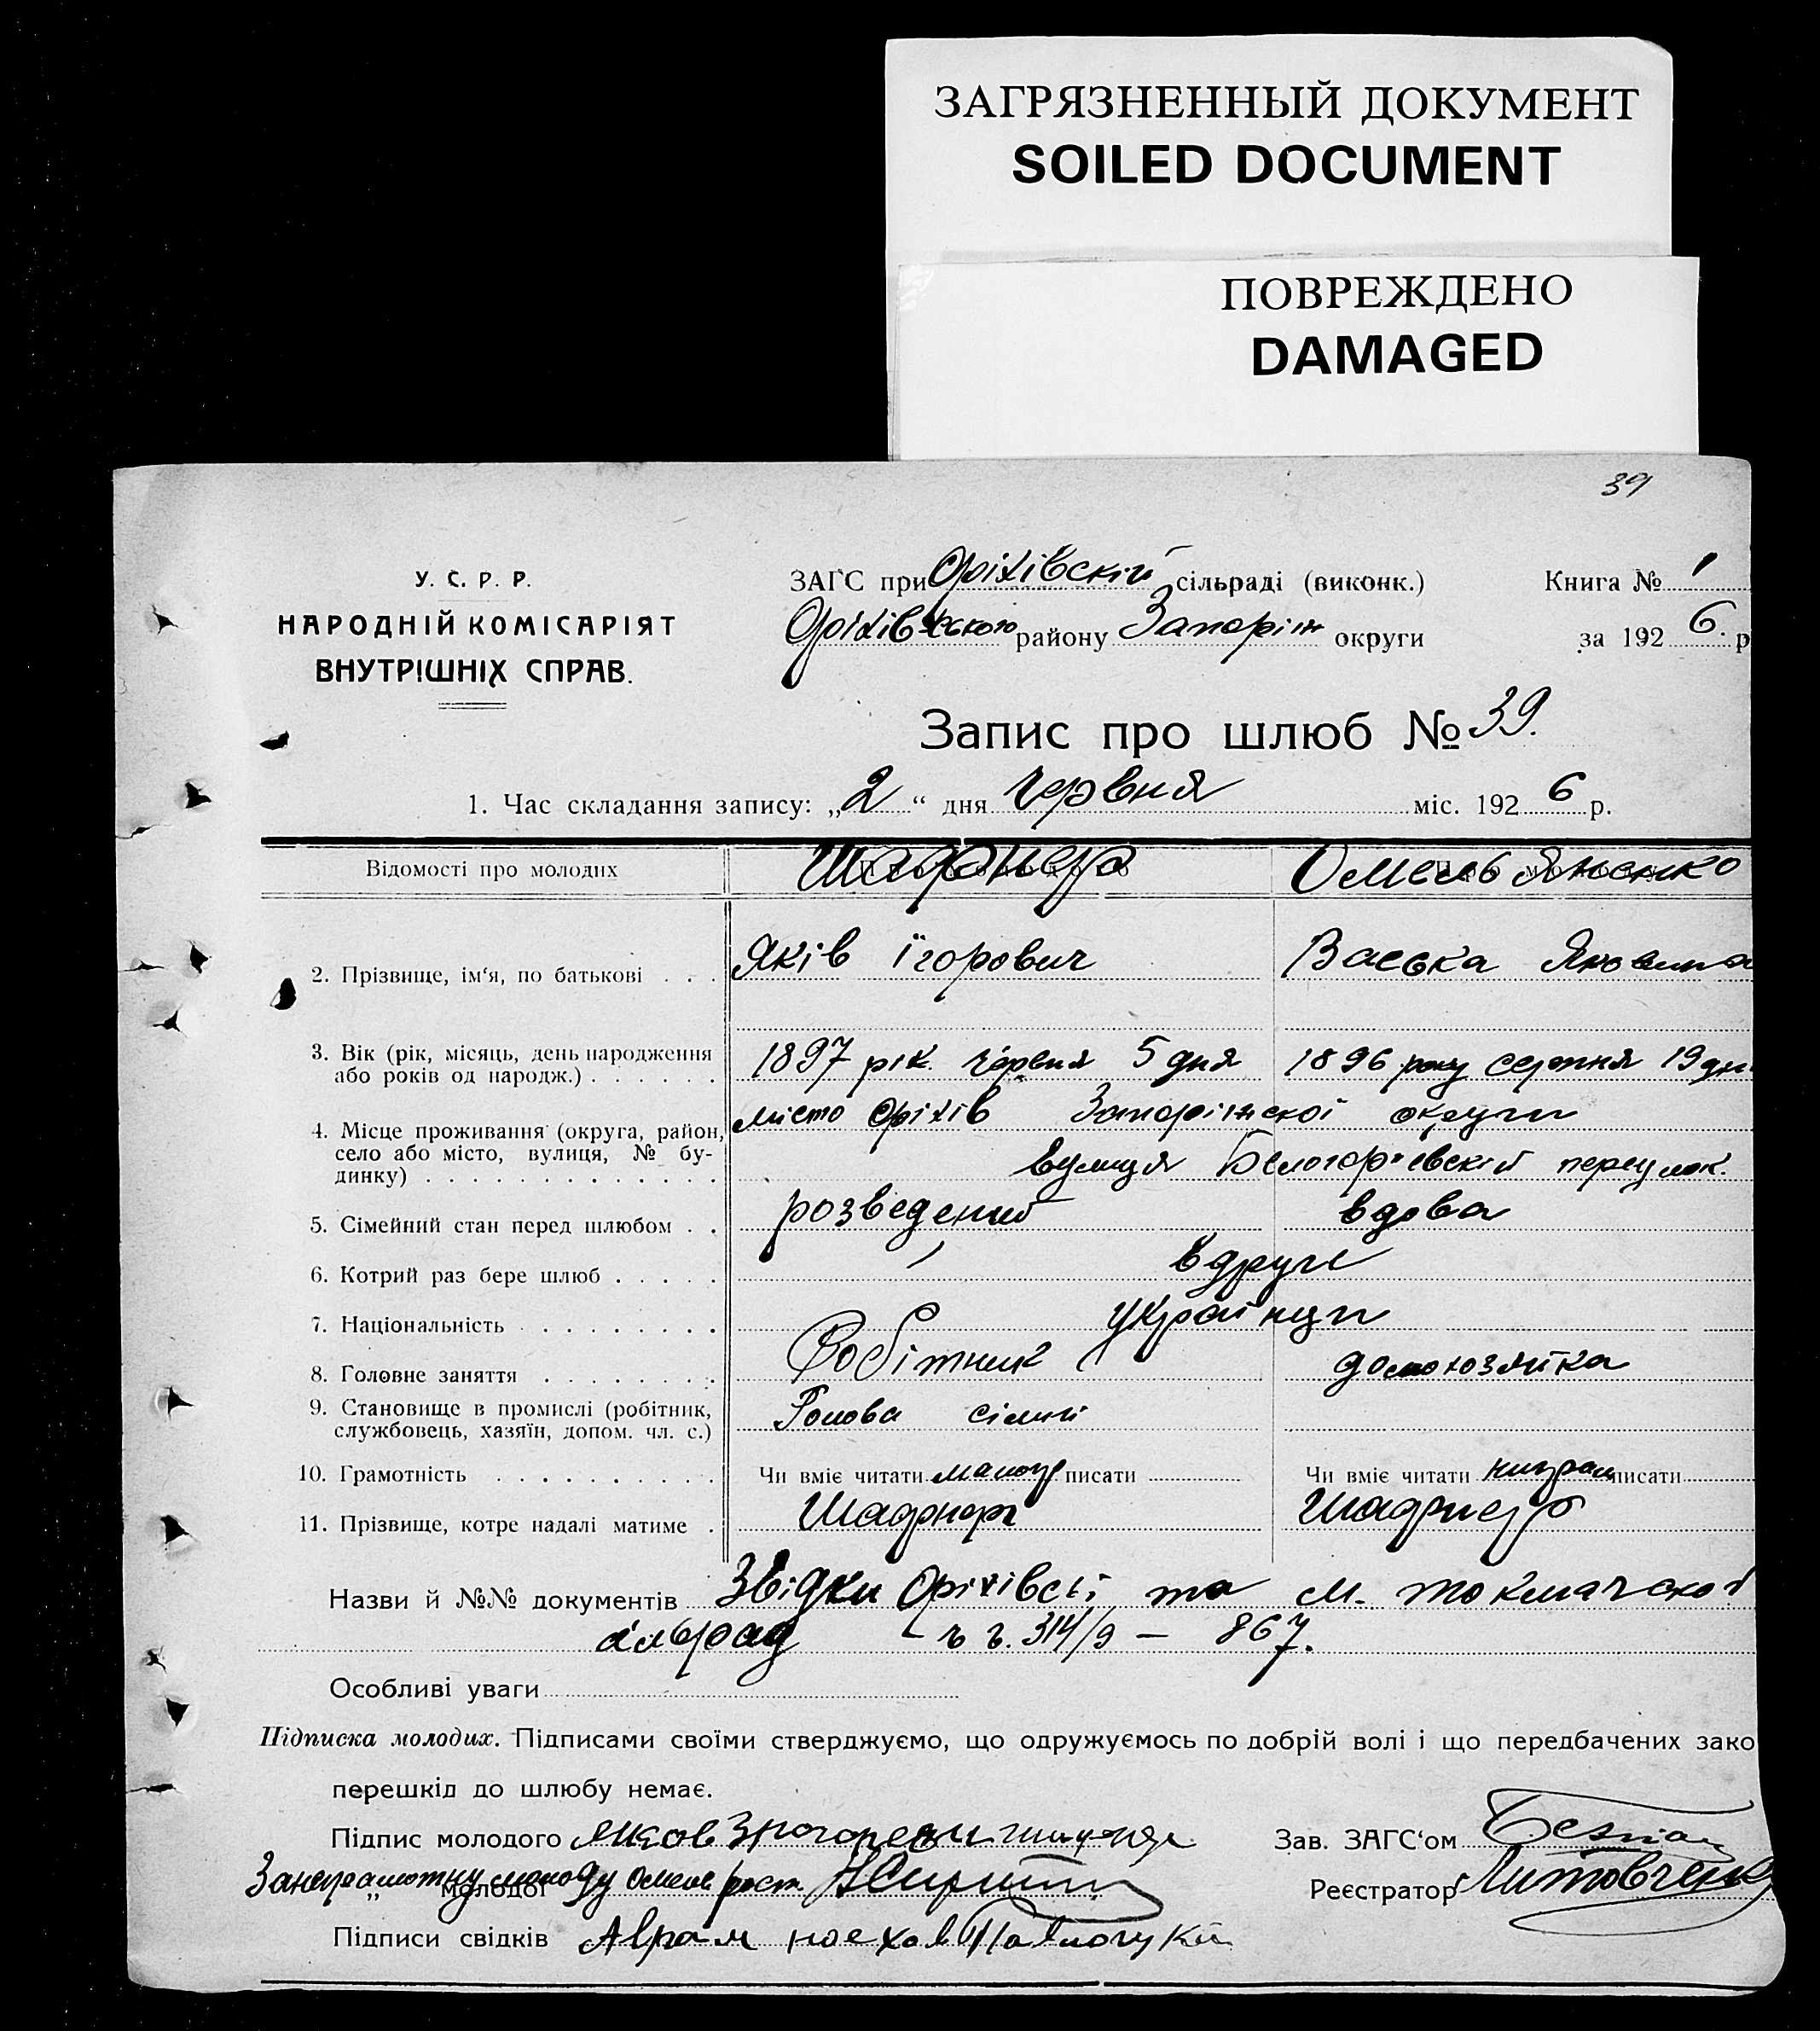 ЗАГРЯЗНЕННЫЙ ДОКУМЕНТ
SOILED DOCUMENT
ПОВРЕЖДЕНО
DAMAGED
39
У. С. Р. Р.
НАРОДНІЙ КОМІСАРІЯТ
ВНУТРІШНІХ СПРАВ.
ЗАГС при Оріхівскій сільраді (виконк.) Книга № 1
Оріхівського району Запоріж округи за 192 6. р
Запис про шлюб № 39.
1. Час складання запису: „2“ дня червня міс. 192 6 р.
Відомості про молодих Омельяненко
2. Прізвище, ім‘я, по батькові . . . Яків Ігорович Васька
3. Вік (рік, місяць, день народження 1897 рік. червня 5 дня 1896 року серпня 19 дн
або років од народж.) . . . . . .
4. Місце проживання (округа, район, місто Оріхів Запоріжскої округи
село або місто, вулиця, № бу- вулиця переулок.
динку) . . . . . . . . . . . . .
5. Сімейний стан перед шлюбом . . розведений вдова
6. Котрий раз бере шлюб . . . . . вдруге
7. Національність . . . . . . . . Українци
8. Головне заняття . . . . . . . . Робітник домохозяйка
9. Становище в промислі (робітник, Голова сімьи
службовець, хазяїн, допом. чл. с.)
10. Грамотність . . . . . . . . . . Чи вміє читати писати Чи вміє читати писати
11. Прізвище, котре надалі матиме .
Назви й №№ документів Звідки Оріхівсі та м. токмачскої
сільрад 314/9 — 867.
Особливі уваги
Підписка молодих. Підписами своїми стверджуємо, що одружуємось по добрій волі і що передбачених зако
перешкід до шлюбу немає.
Підпис молодого Зав. ЗАГС‘ом
За неграмотну молоду рост.
„ молодої Реєстратор Литовченко
Підписи свідків Аврам